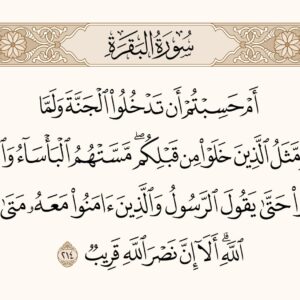 سُورَةُ البَقَرَةِ
أَمْ حَسِبْتُمْ أَن تَدْخُلُوا۟ ٱلْجَنَّةَ وَلَمَّا
مَّثَلُ ٱلَّذِينَ خَلَوْا۟ مِن قَبْلِكُم ۖ مَّسَّتْهُمُ ٱلْبَأْسَآءُ
حَتَّىٰ يَقُولَ ٱلرَّسُولُ وَٱلَّذِينَ ءَامَنُوا۟ مَعَهُۥ مَتَىٰ
ٱللَّهِ ۗ أَلَآ إِنَّ نَصْرَ ٱللَّهِ قَرِيبٌ ٢١٤